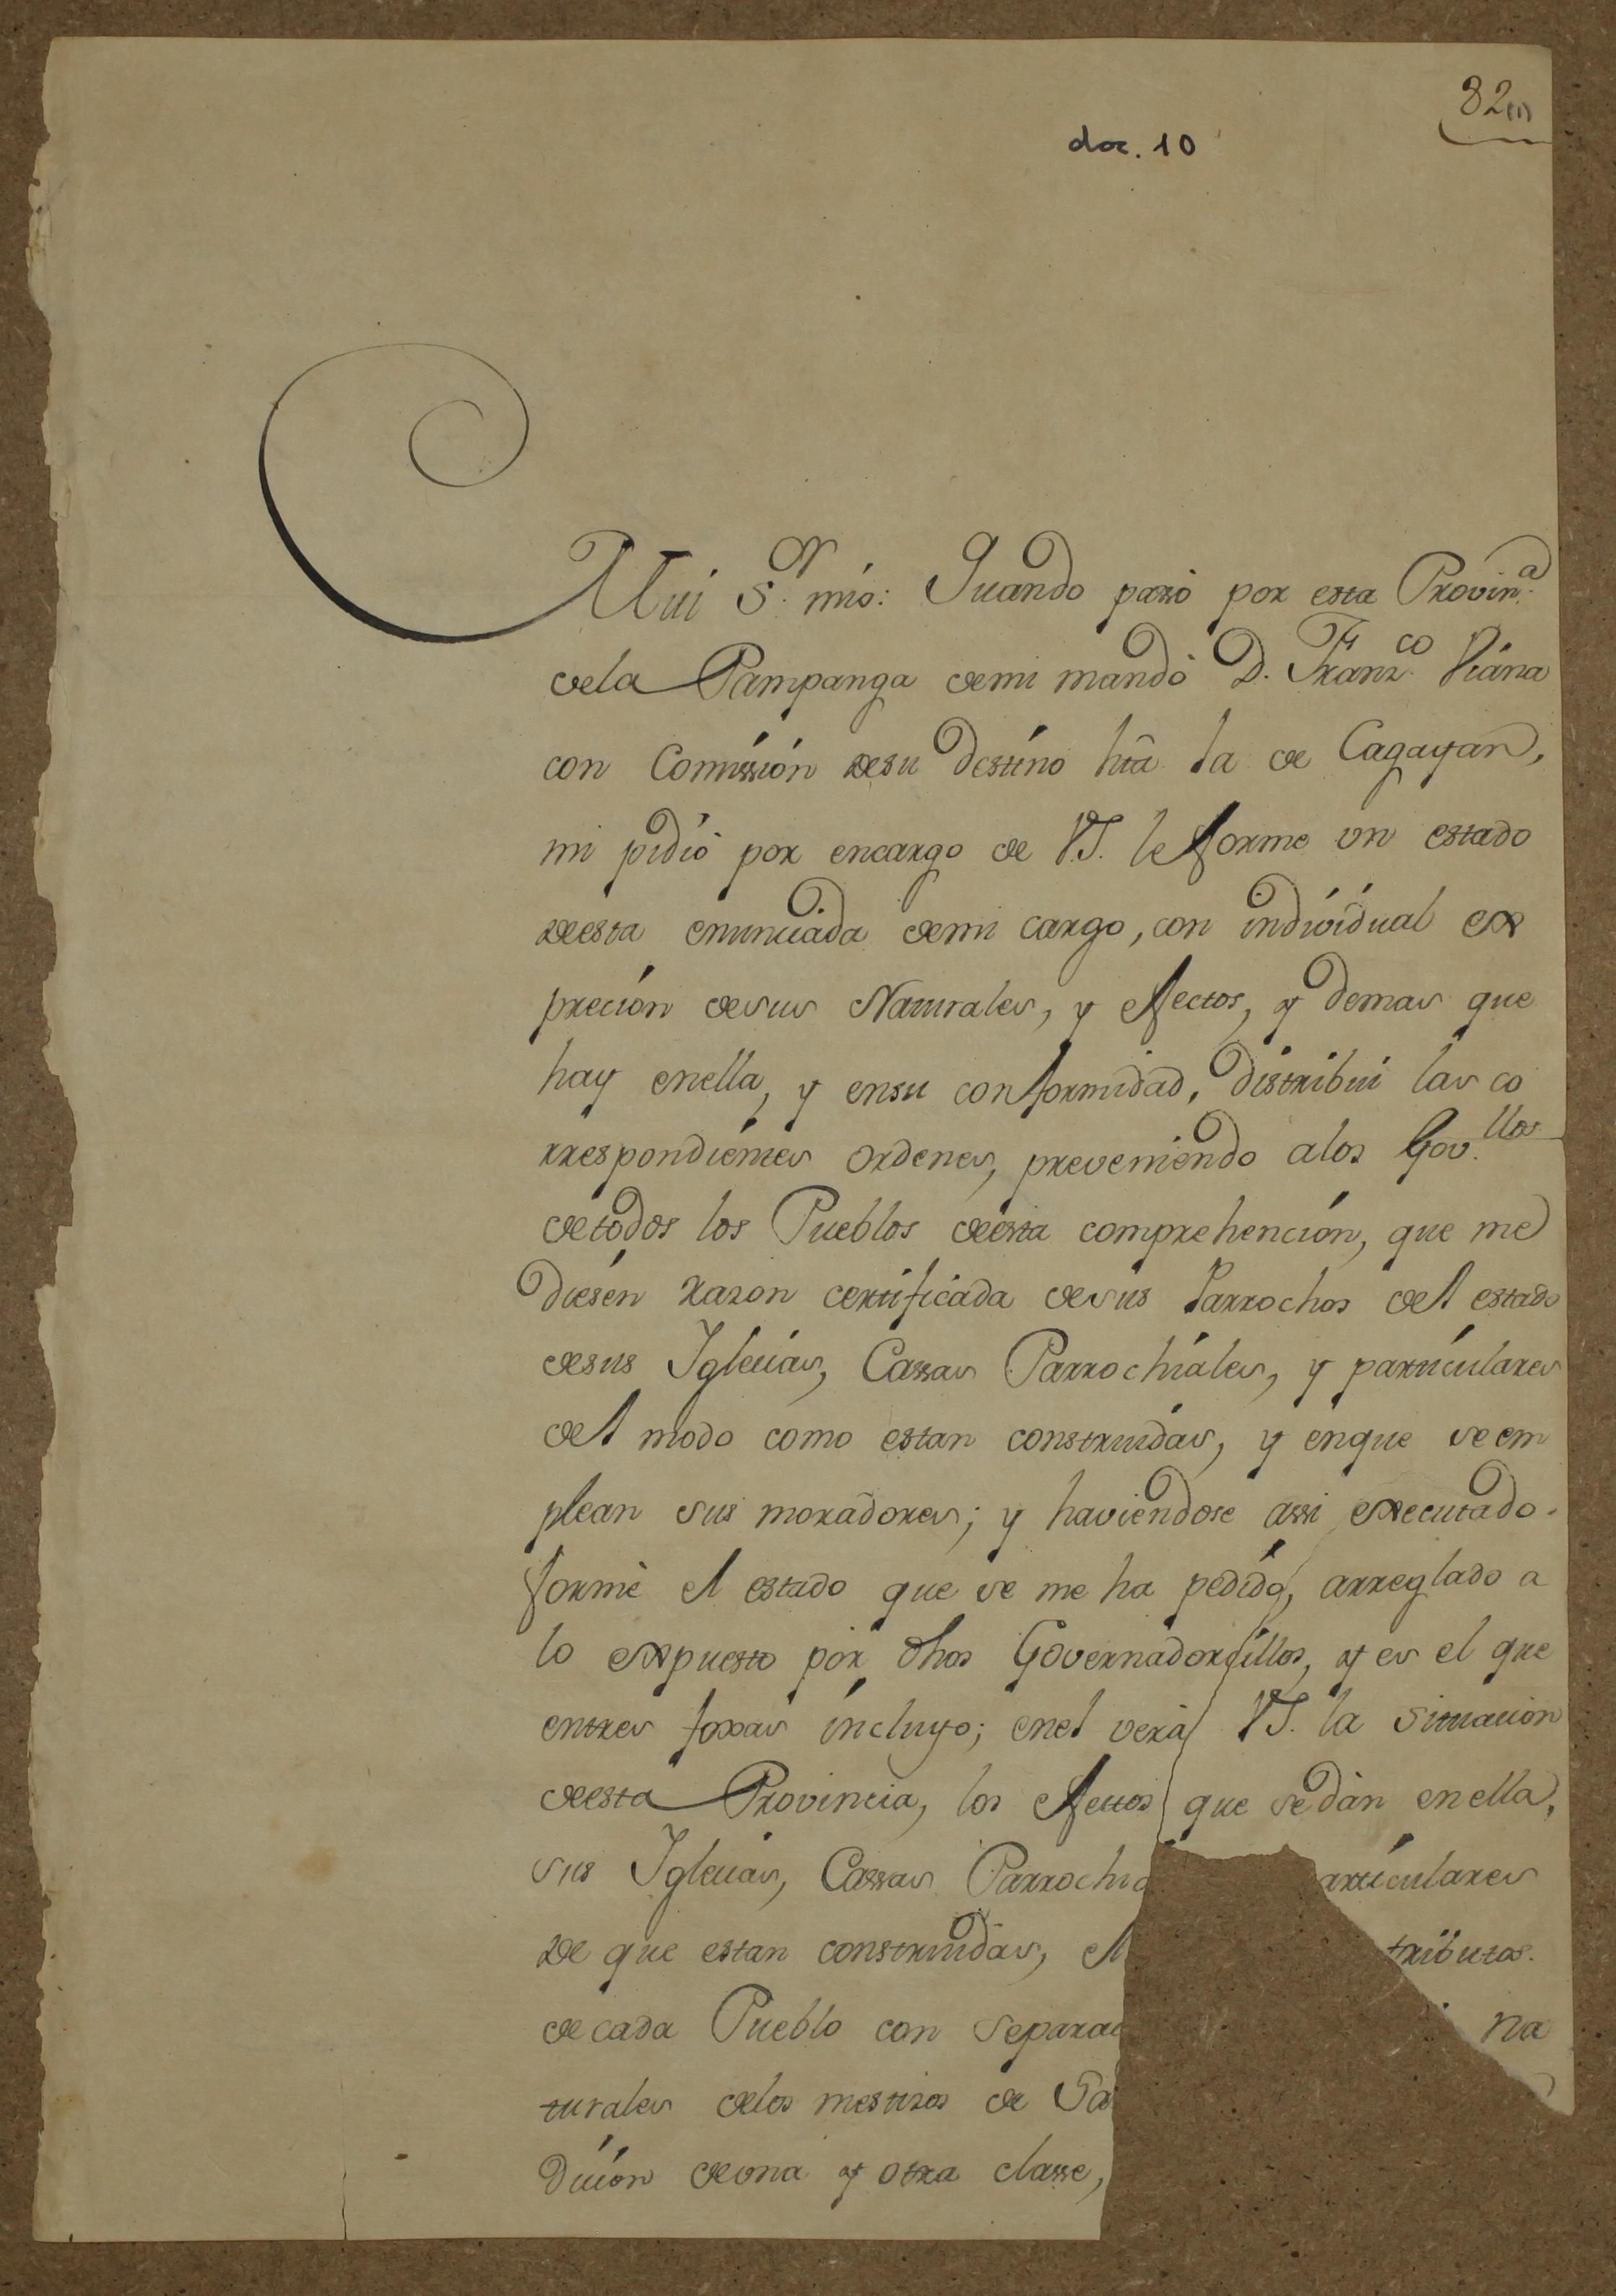 82(1)
doc. 10
Mui S.or mio: Quando passó por esta Provin.a
dela Pampanga demi mando D. Franz.co Viana
con Comissión desu destino hta la de Cagayan,
mi pidió por encargo de VS. le forme un estado
deesta enunciada demi cargo, con individual ex
preción desus Naturales, y efectos, y demas que
hay enella, y ensu conformidad, distribui las co
rrespondientes ordenes, preveniendo alos Gov.llos
detodos los Pueblos deesta comprehención, que me
diesen razon certificada desus Parrochos del estado
desus Iglecias, Cassas Parrochiales, y particulares
del modo como estan construidas, y enque se em
plean sus moradores; y haviendose assi executado.
formè el estado que se me ha pedido, arreglado a
lo expuesto por dhos Governadorcillos, y es el que
entres foxas incluyo; enel verà VS. la situacion
deesta Provincia, los efectos que se dàn enella,
sus Iglecias, Cassas Parrochia articulares
de que estan construidas, el tributos.
de cada Pueblo con separac na
turales delos mestizos de Sa
dicion deuna y otra classe,